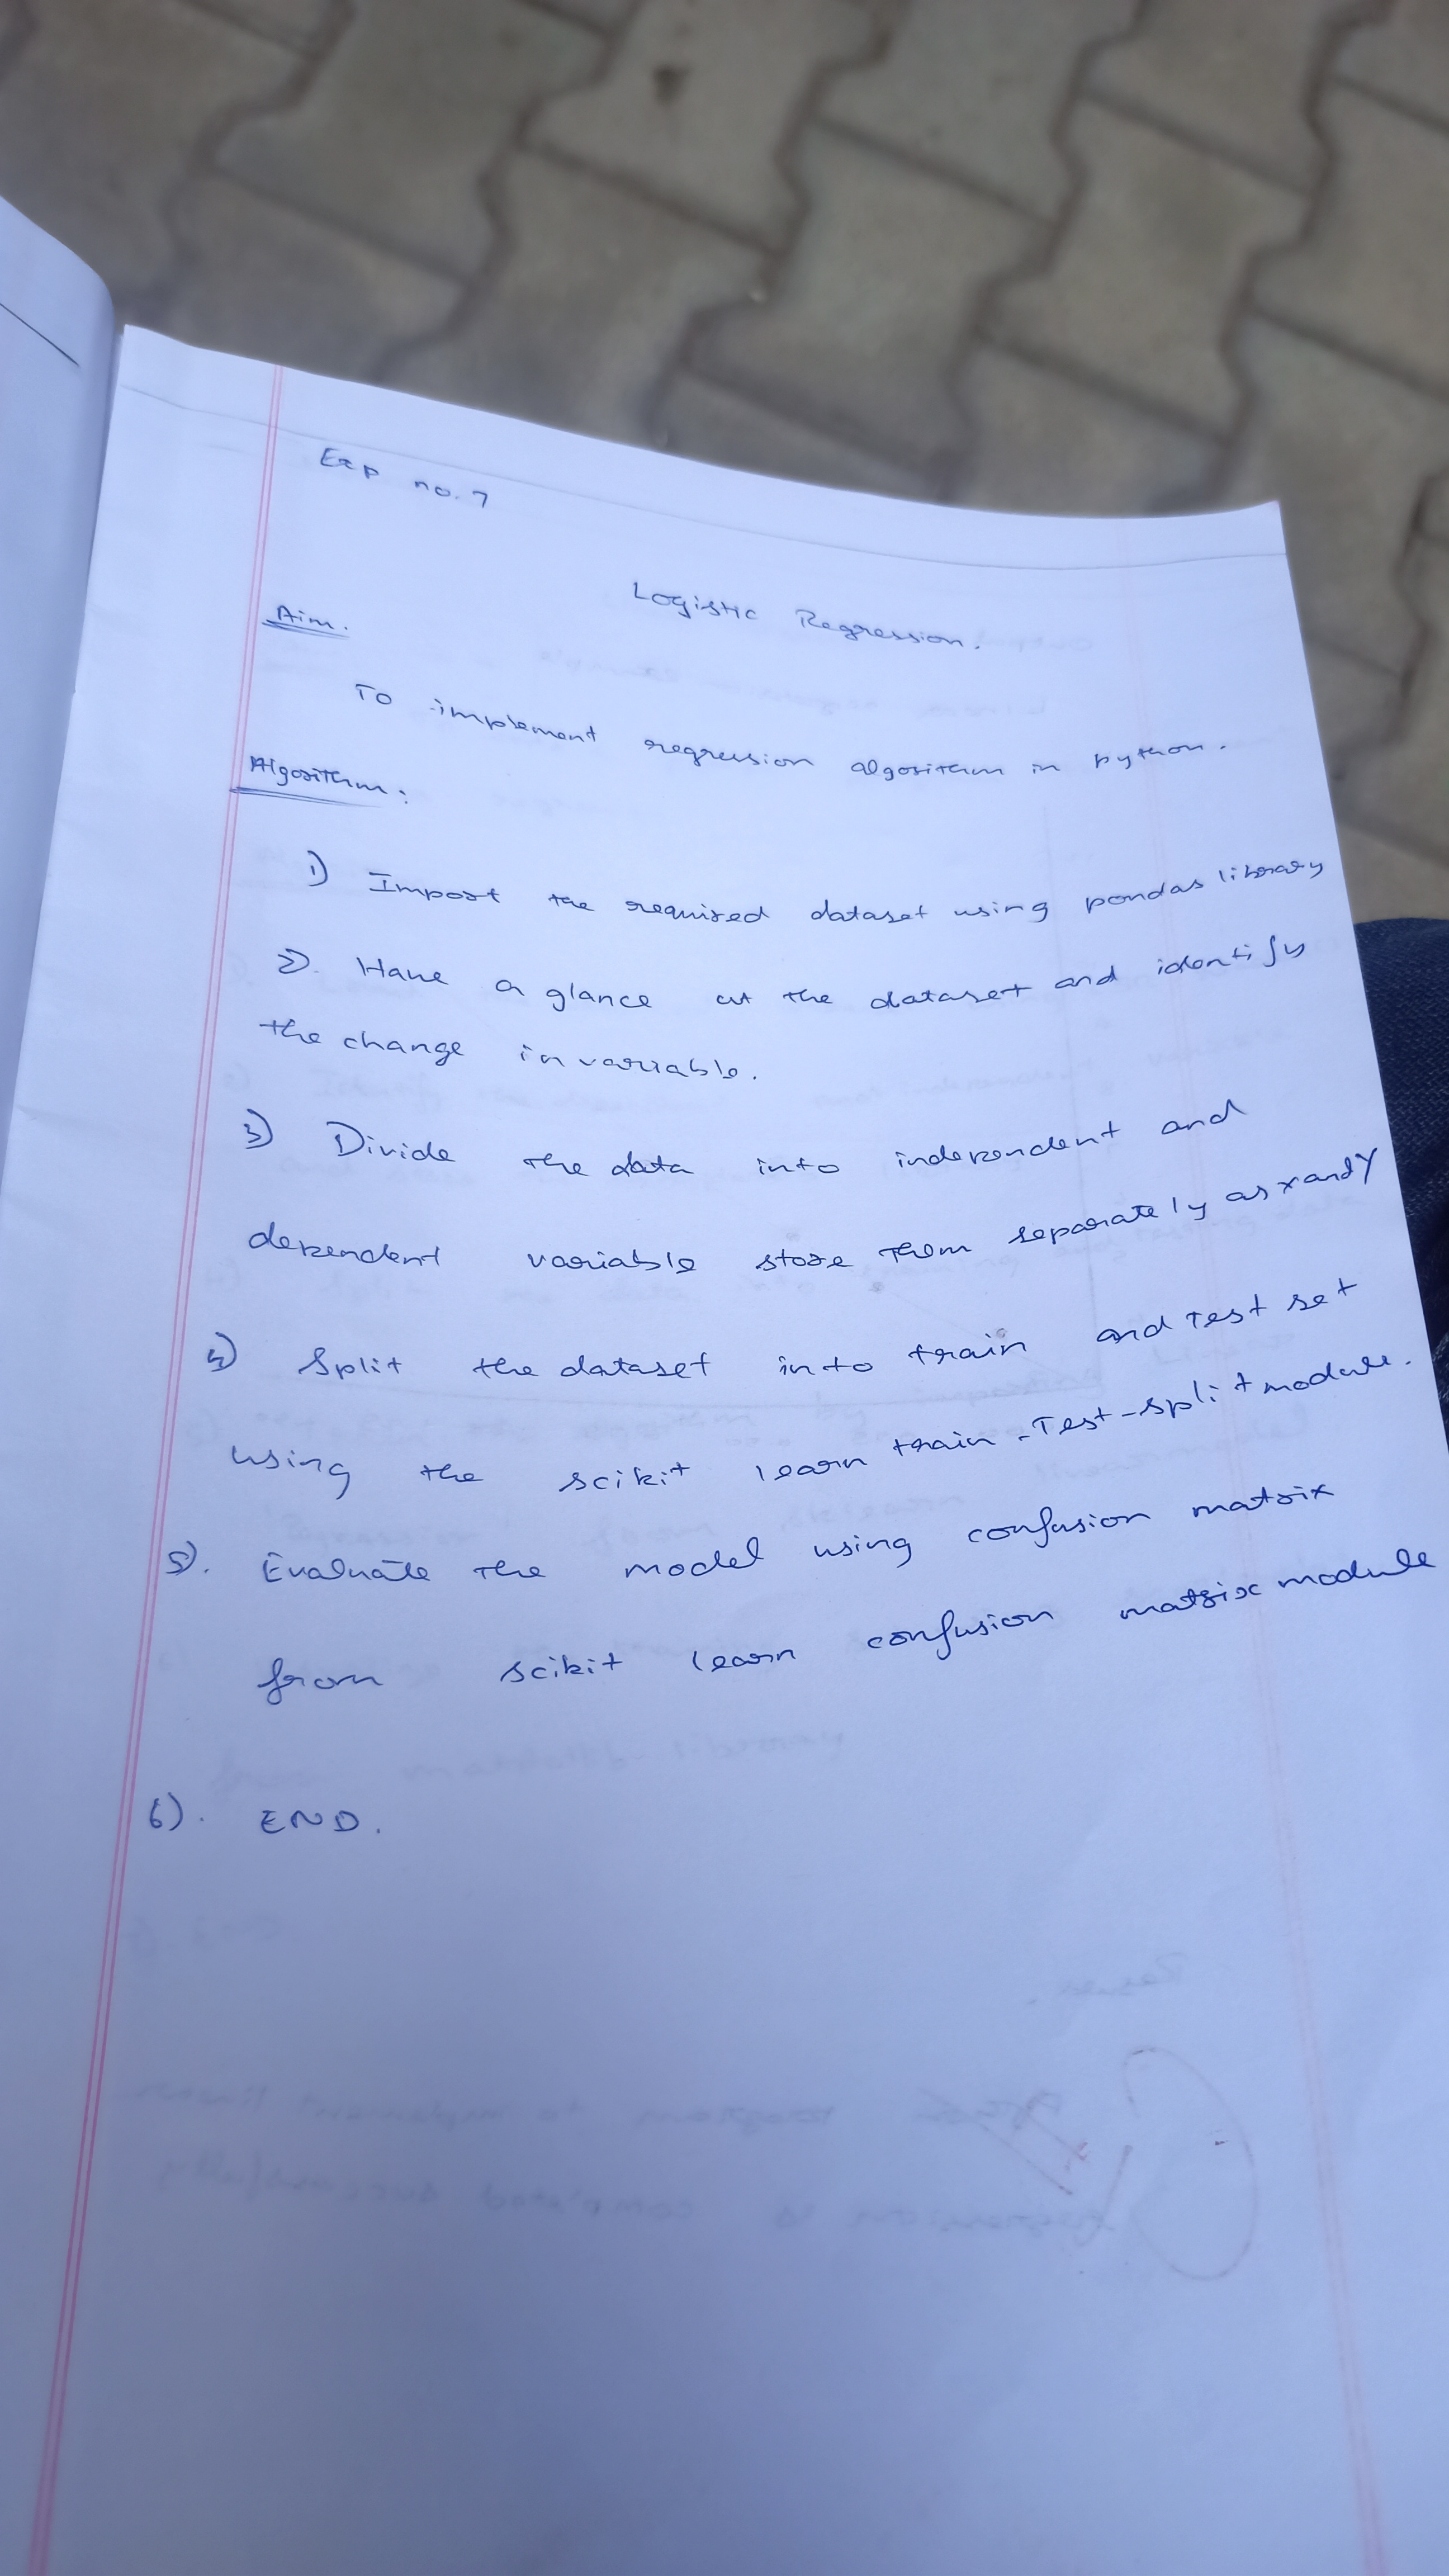 Exp no. 7
Logistic Regression.
Aim.
To implement regression algorithm in python.
Algorithm:
1) Import the required dataset using pandas library
2). Have a glance at the dataset and identify
the change in variable.
3) Divide the data into independent and
dependent variable store them separately as x and Y
4) Split the dataset into train and test set
using the scikit learn train-Test-split module.
5). Evaluate the model using confusion matrix
from scikit learn confusion matrix module
6). END.